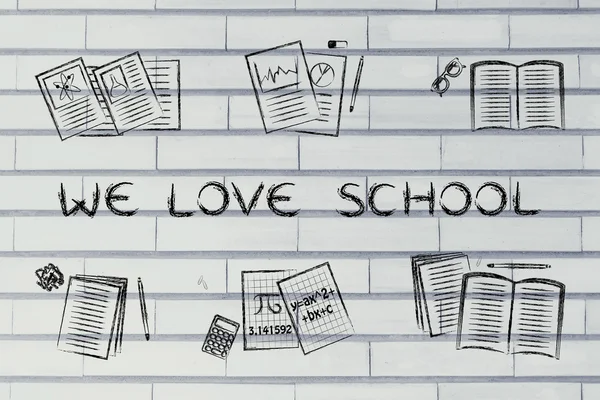 WE LOVE SCHOOL
π
3.141592
y=ax^2+
+bx+c